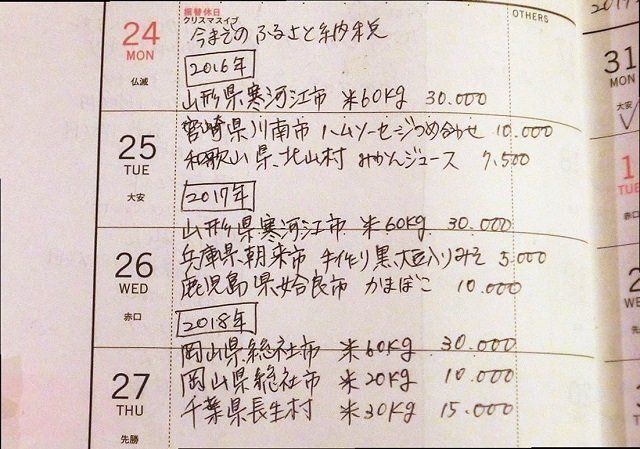 振替休日
クリスマスイブ
OTHERS
24
MON
仏滅
今までのふるさと納税
2016年
山形県寒河江市 米60kg 30.000
宮崎県川南市 ハムソーセージつめ合わせ 10.000
25
TUE
大安
和歌山県.北山村 みかんジュース 7,500
2017年
山形県寒河江市 米60kg 30.000
26
WED
赤口
兵庫県.朝来市 手作り黒大豆入りみそ 5.000
鹿児島県姶良市 かまぼこ 10.000
2018年
岡山県総社市 米60kg 30.000
27
THU
先勝
岡山県総社市 米20kg 10.000
千葉県長生村 米30kg 15.000
31
MON
大安
1
TUE
赤口